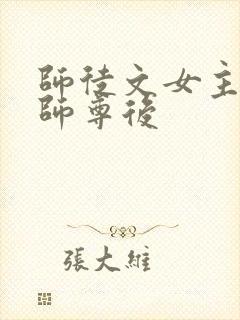 師徒文女主
師尊後
張大維